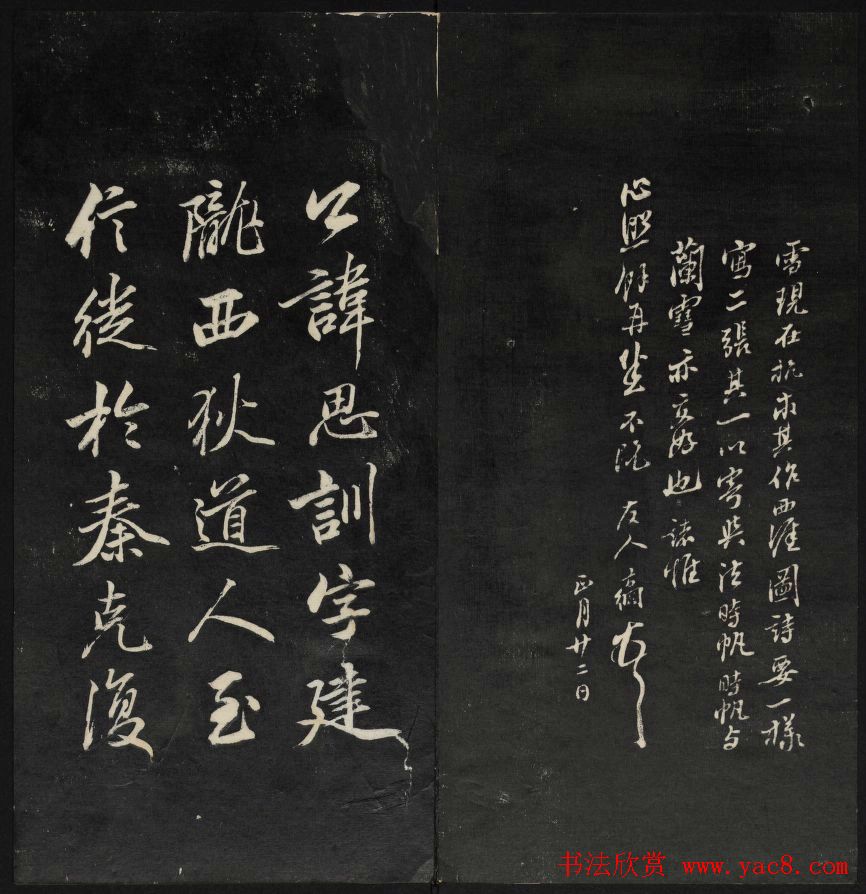 雪現在杭求其作西涯圖詩要一樣
寫二張其一以寄與法時帆時帆与
蘭雪亦交好也諸惟
心照餘再悉不既友人
正月廿二日
公諱思訓字建
隴西狄道人至
信徙於秦克復
书法欣赏 www.yac8.com